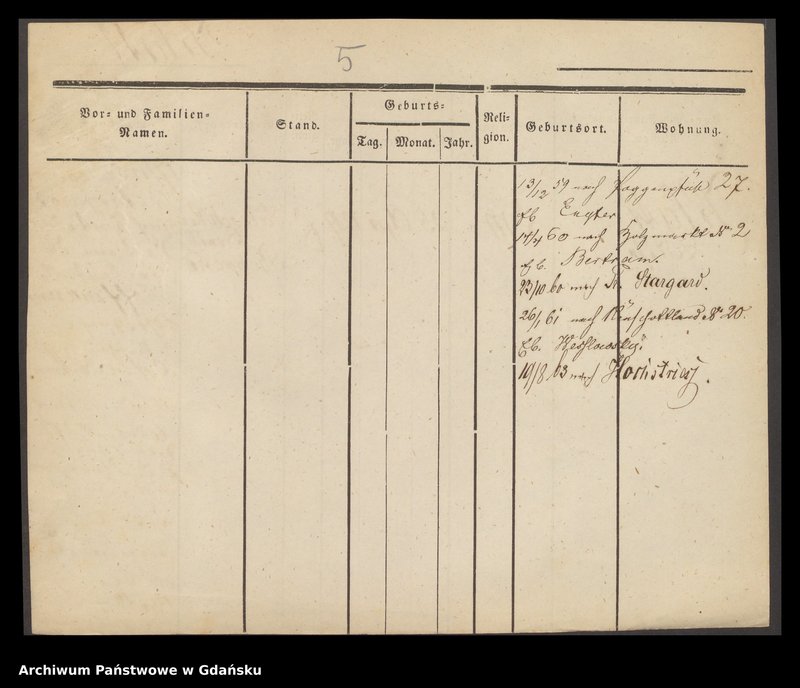 5
Vor- und Familien-
Namen.
Stand.
Geburts-
Tag.
Monat.
Jahr.
Reli-
gion.
Geburtsort.
Wohnung.
13/12 59 nach Poggenpfuhl 27.
Engler
17/4 60 nach Holzmarkt No 2
Bertram.
23/10 60 nach Pr. Stargard.
26/1 61 nach Neuschottland No 20.
19/8 63 nach Hochstriess.
Archiwum Państwowe w Gdańsku